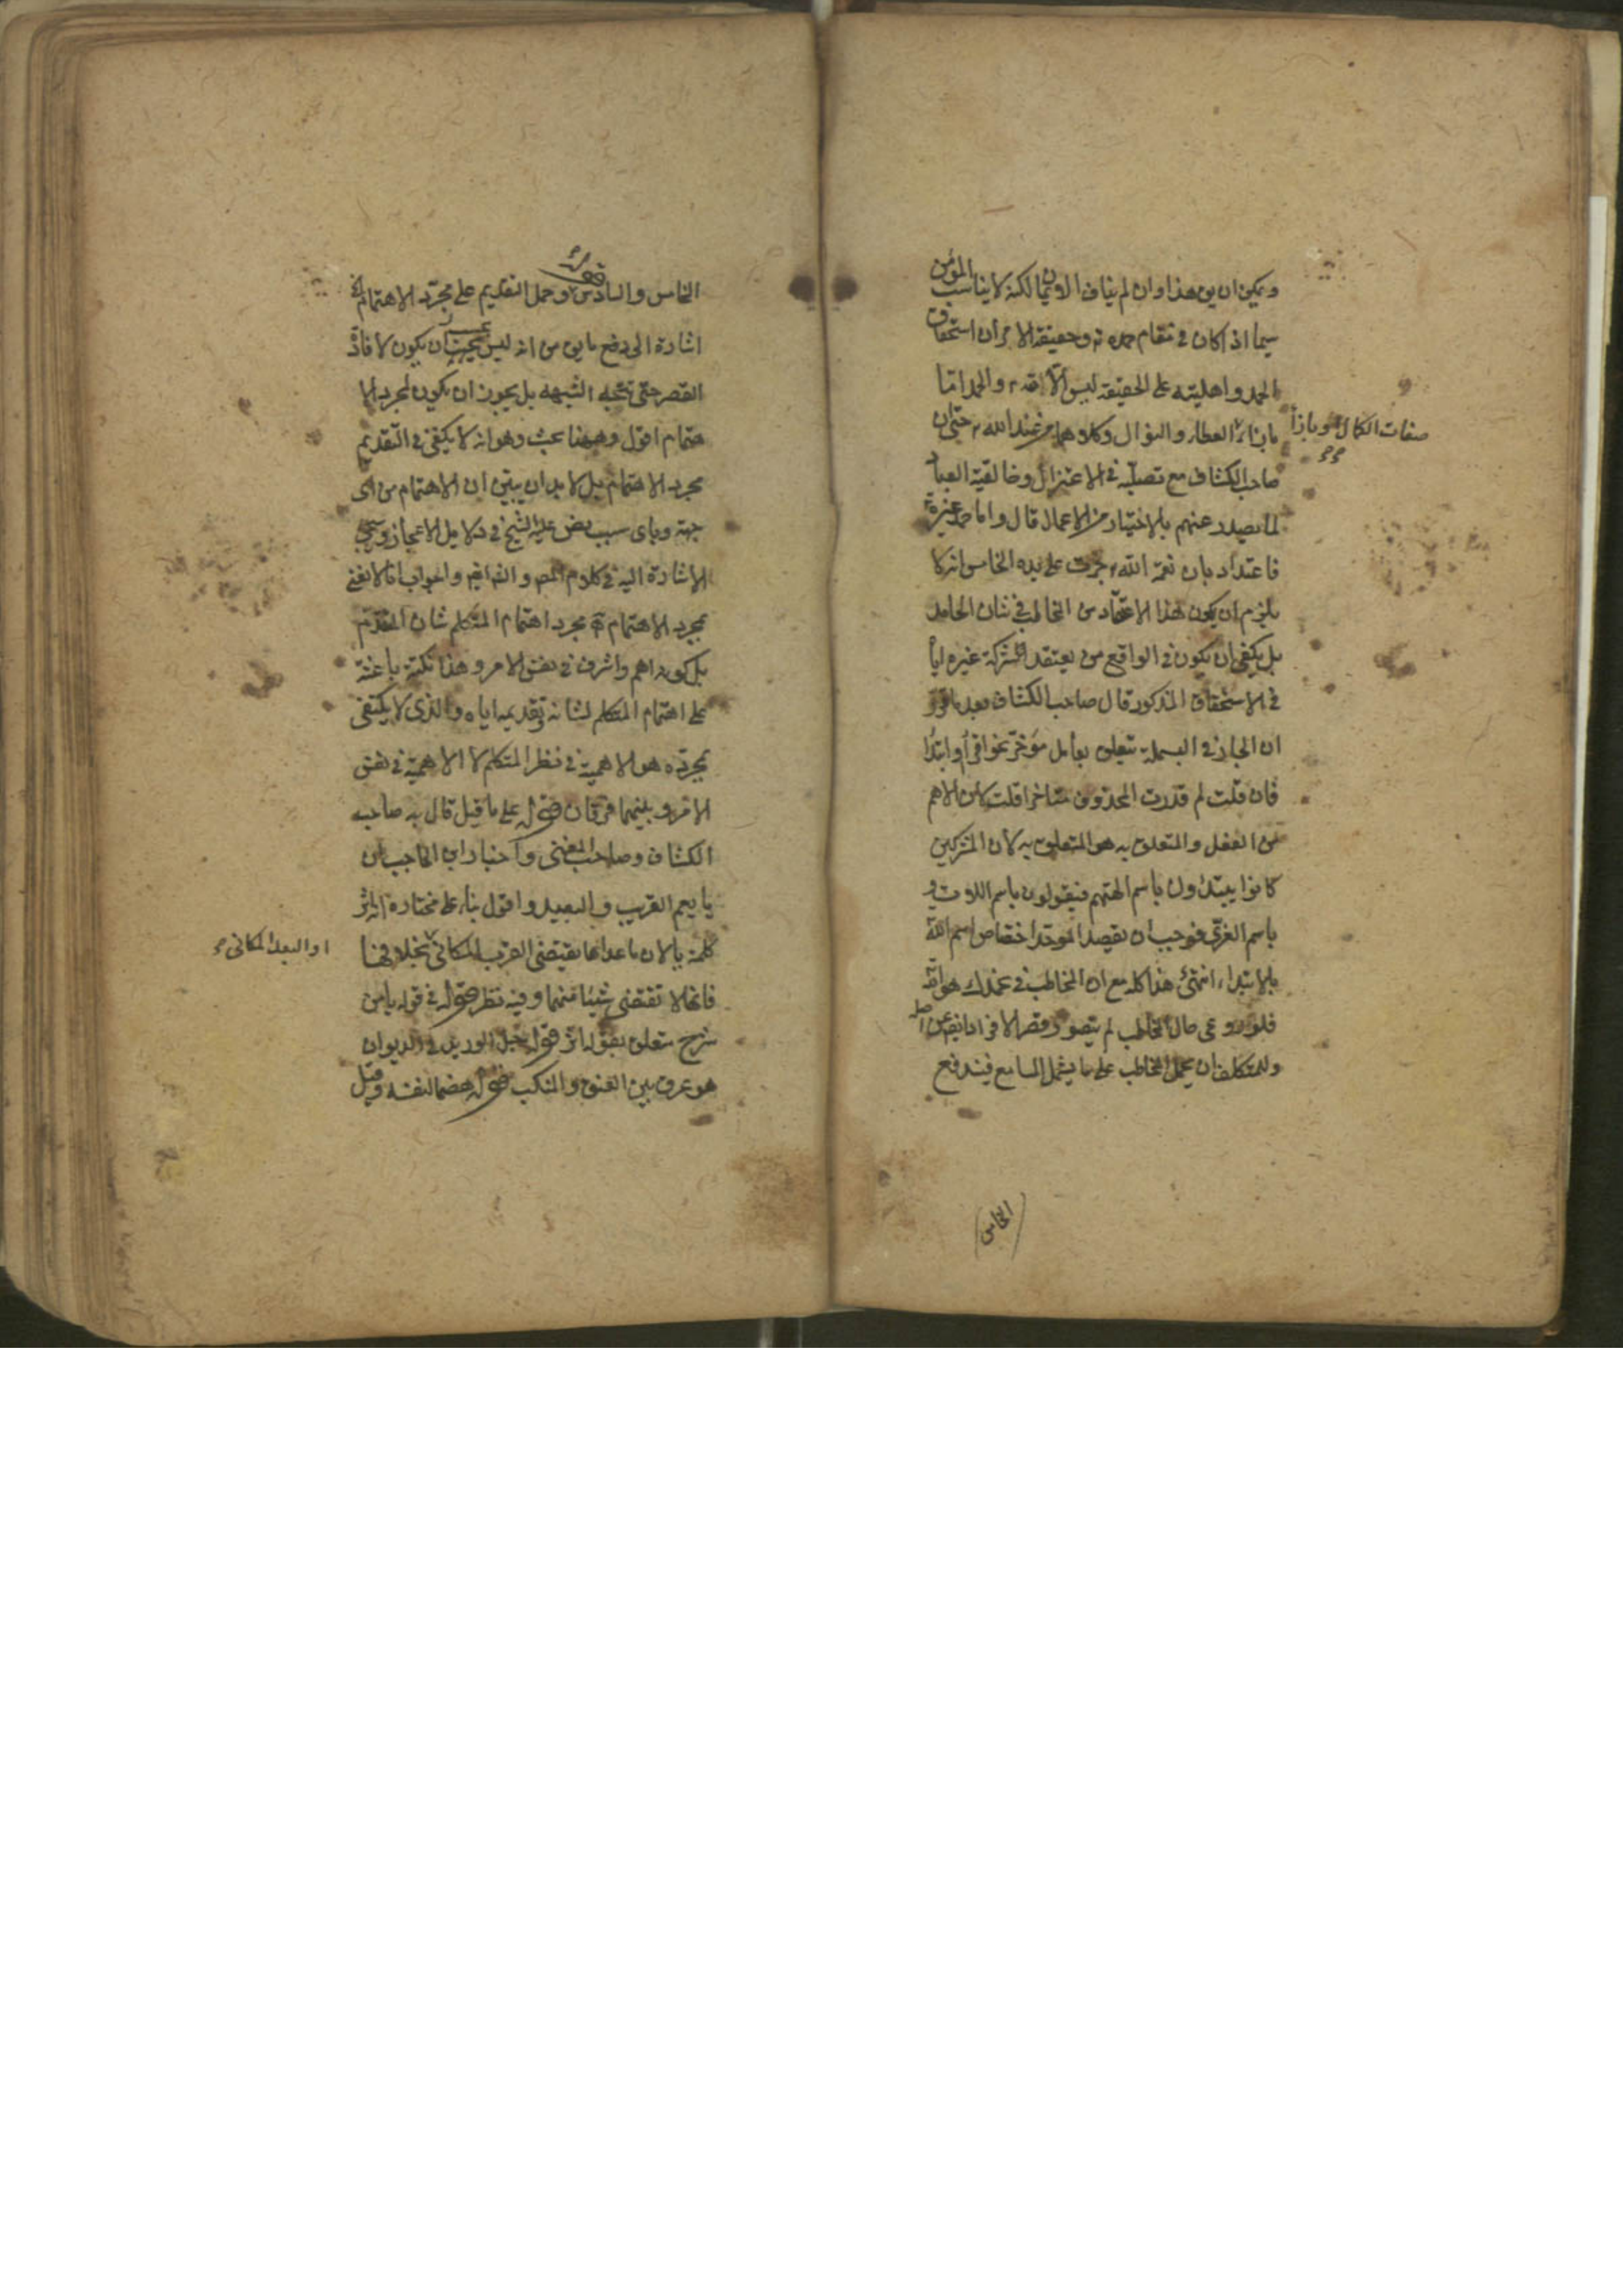 ويمكن ان يق هذا وان لم يناف الايمان لكنه لا يناسب المؤمن
سيما اذا كان في مقام حمده تع وحقيقة الامر ان استحقاق
الحمد واهليته على الحقيقة ليس الا لله تع والحمد اما
بازاء العطاء والنوال وكلاهما من عند الله تع حتى ان
صفات الكمال او بازاء
صاحب الكشاف مع تصلبه في الاعتزال وخالقية العباد
لما يصدر عنهم بالاختيار من الاعمال قال واما حمد غيره
فاعتداد بان نعمة الله تع جرت على يده الخامس انه لا
يلزم ان يكون هذا الاعتقاد من المخاطب في شان الحامد
بل يكفي ان يكون في الواقع من يعتقد شركة غيره اياه
في الاستحقاق المذكور قال صاحب الكشاف بعد ما قرر
ان الجار في البسملة متعلق بعامل مؤخر نحو اقرأ او ابتدأ
فان قلت لم قدرت المحذوف متاخرا قلت لان الاهم
من الفعل والمتعلق به هو المتعلق به لان المشركين
كانوا يبتدؤن باسم الهتهم فيقولون باسم اللات و
باسم العزى فوجب ان يقصد الموحد اختصاص اسم الله
بالابتداء انتهى هذا كله مع ان المخاطب في عمدك هو الله
فلو روعى حال المخاطب لم يتصور قصر الافراد
وللمتكلف ان يحمل المخاطب على ما يشمل السامع فيندفع
الخامس
الخامس والسادس وحمل التقديم على مجرد الاهتمام
اشارة الى دفع ما يق من انه ليس يجب ان يكون لافادة
القصر حتى تتجه الشبهه بل يجوز ان يكون لمجرد الا
هتمام اقول وههنا بحث وهو انه لا يكفي في التقديم
مجرد الاهتمام بل لا بد ان يبين ان الاهتمام من اى
جهة وباى سبب نص عليه الشيخ في دلايل الاعجاز وسيجئ
الاشارة اليه في كلام المص والجواب انا لا نعني
بمجرد الاهتمام مجرد اهتمام المتكلم شان المقدم
بل كونه اهم واشرف في نفس الامر وهذا نكتة باعثة
على اهتمام المتكلم لشانه وتقديمه اياه والذى لا يكتفى
بمجرده هو الاهمية في نظر المتكلم لا الاهمية في نفس
الامر وبينهما فرقان قوله على ما قيل قال به صاحب
الكشاف وصاحب المغنى واختار ابن الحاجب ان
يا يعم القريب والبعيد واقول بناء على مختاره اثر
كلمة يا لان ما عداها يقتضى القرب المكانى بخلافها
او البعد المكانى
فانها لا تقتضى شيئا منهما وفيه نظر قوله في قوله يا من
شرح متعلق بقوله اثر قوله حبل الوريد في الديوان
هو عرق بين العنق والمنكب قوله هضما لنفسه وقيل